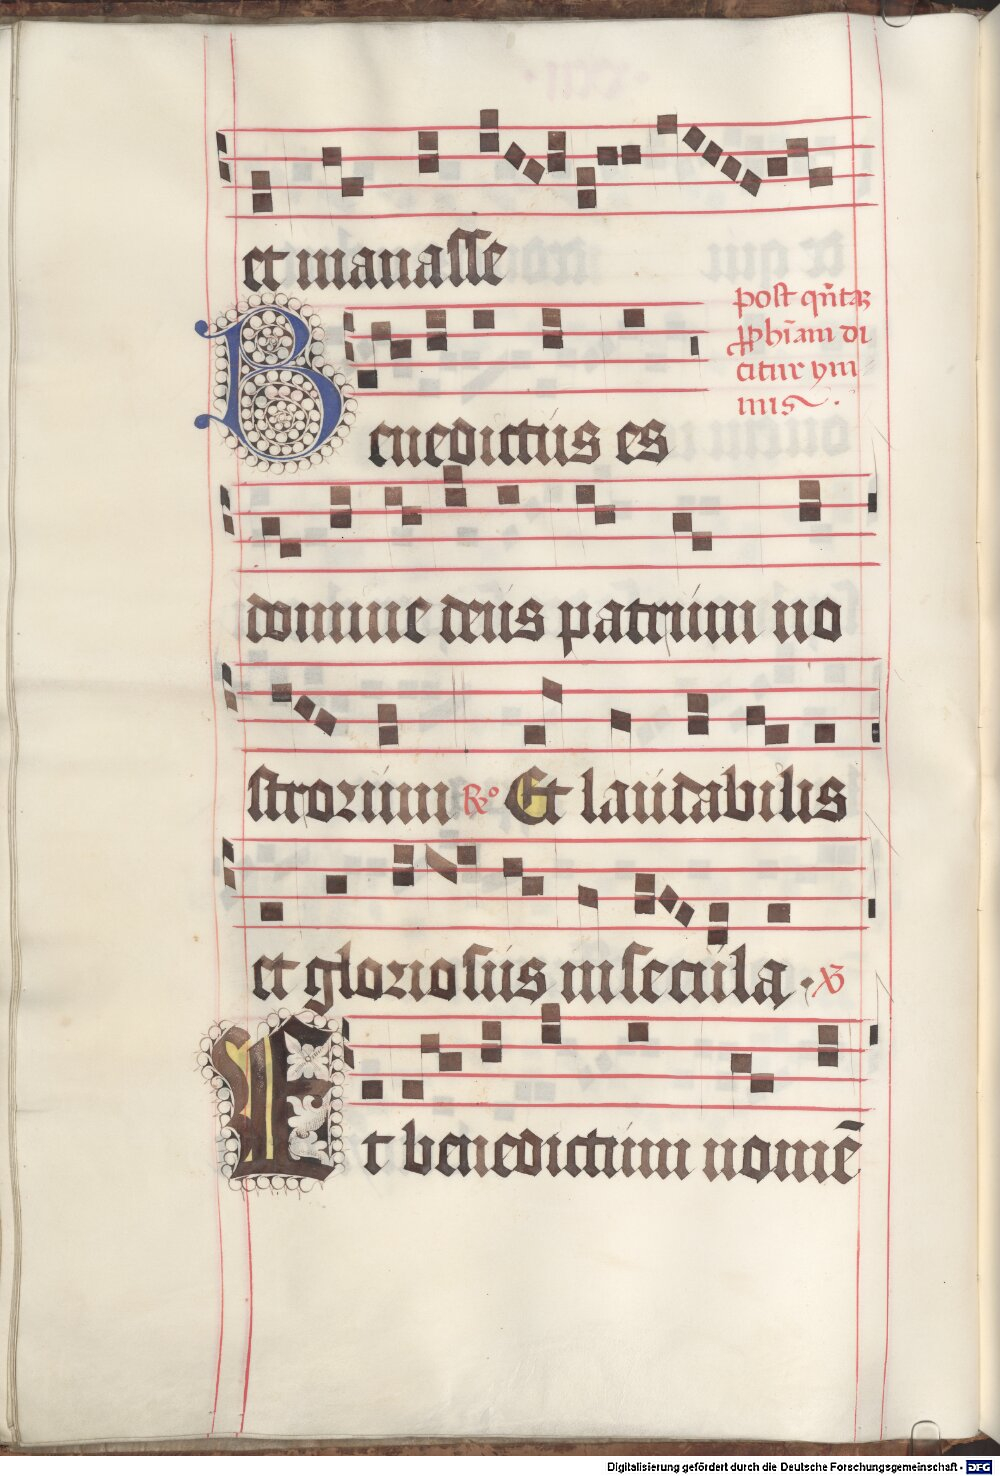 et manasse
post qn̄taꝫ
ꝓph̄iam di
citur ym
nus.
Benedictus es
domine deus patrum no
strorum ℟o Et laudabilis
et gloriosus in secula. ℣
Et benedictum nomē
Digitalisierung gefördert durch die Deutsche Forschungsgemeinschaft - DFG